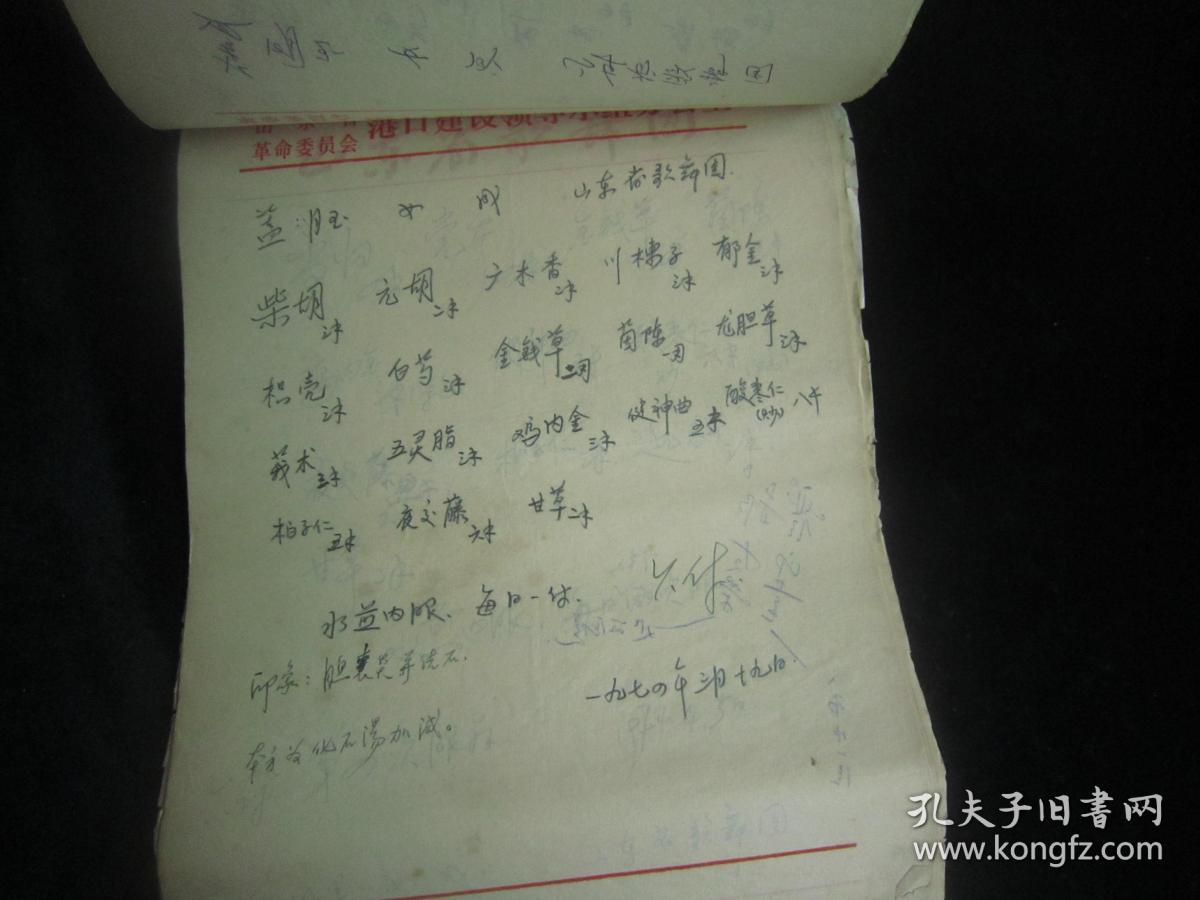 革命委员会 港口建设领导小组办公室
女 成 山东省歌舞团
柴胡三钱 元胡二钱 广木香二钱 川楝子三钱 郁金三钱
枳壳三钱 白芍三钱 金钱草二两 茵陈一两 龙胆草三钱
莪术三钱 五灵脂三钱 鸡内金三钱 建神曲五钱 酸枣仁(炒)八钱
柏子仁五钱 夜交藤六钱 甘草二钱
六付
水煎内服、每日一付.
印象:胆囊炎并结石.
一九七四年三月十九日.
本方为化石汤加减。
孔夫子旧书网
www.kongfz.com